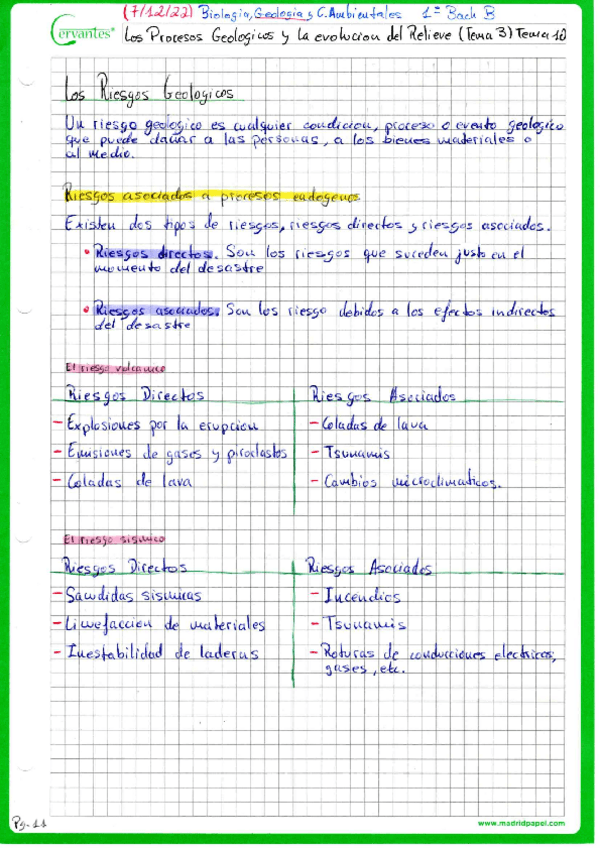 (7/12/22) Biologia, Geologia y C. Ambientales 1º Bach B
Cervantes® Los Procesos Geologicos y la evolucion del Relieve (Tema 3) Tema 10
Los Riesgos Geologicos
Un riesgo geologico es cualquier condicion, proceso o evento geologico
que puede dañar a las personas, a los bienes materiales o
al medio.
Riesgos asociados a procesos endogenos
Existen dos tipos de riesgos, riesgos directos y riesgos asociados.
• Riesgos directos. Son los riesgos que suceden justo en el
momento del desastre
• Riesgos asociados. Son los riesgo debidos a los efectos indirectos
del desastre
El riesgo volcanico
Riesgos Directos Riesgos Asociados
- Explosiones por la erupcion - Coladas de lava
- Emisiones de gases y piroclastos - Tsunamis
- Coladas de lava - Cambios microclimaticos.
El riesgo sismico
Riesgos Directos Riesgos Asociados
- Sacudidas sismicas - Incendios
- Licuefaccion de materiales - Tsunamis
- Inestabilidad de laderas - Roturas de conducciones electricas,
gases, etc.
Pg. 11 www.madridpapel.com